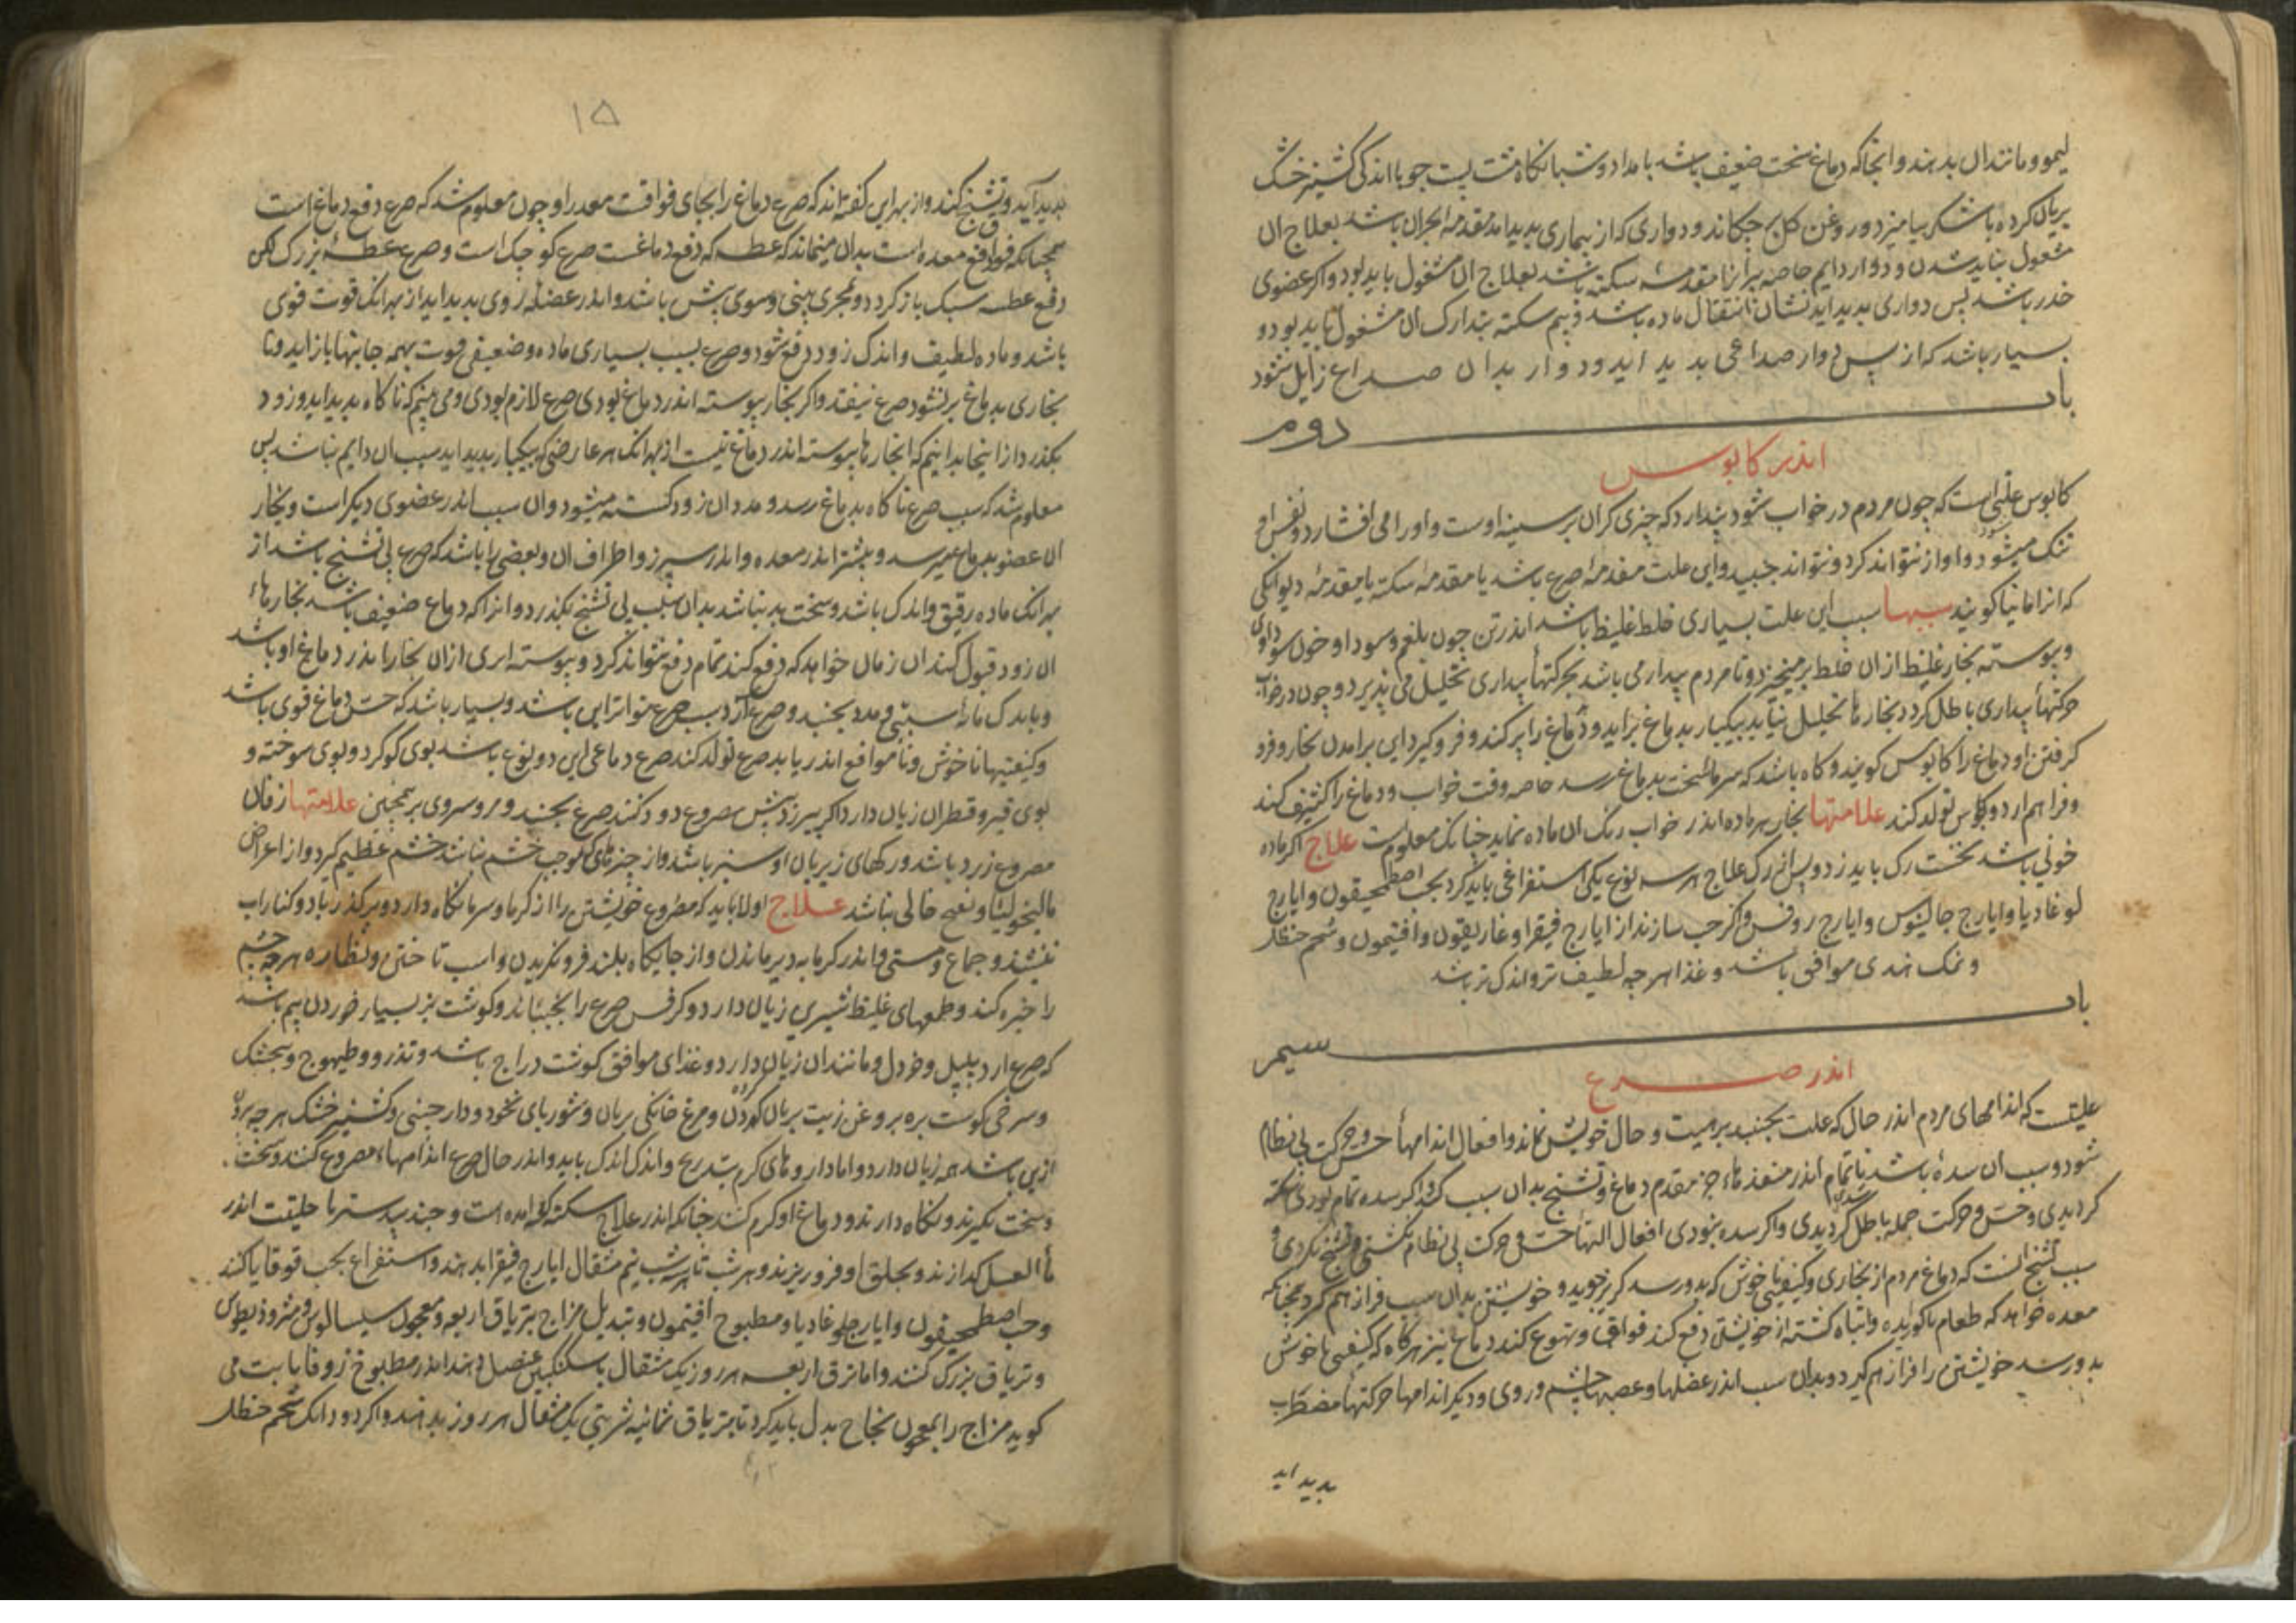 لیمو و مانند ان بدهند و انجا که دماغ سخت ضعیف باشد بامداد و شبانکاه مشت پست جو با اندکی کشنیز خشک
بریان کرده با شکر بیامیزد و روغن کل بر چکاند و دواری که از بیماری بدید اید مقدمه بحران باشد بعلاج ان
مشغول نباید شدن و دوار دایم خاصه پیرانرا مقدمه سکته باشد بعلاج ان مشغول باید بود و اکر عضوی
خدر باشد پس دواری بدید اید نشان انتقال ماده باشد و بیم سکته بتدارک ان مشغول باید بود و
بسیار باشد که از پس دوار صداعی بدید اید و دوار بدان صداع زایل شود
باب دوم
اندر کابوس
کابوس علتی است که چون مردم در خواب شود پندارد که چیزی کران بر سینه اوست و او را می افشارد و نفس او
تنک میشود و اواز نتواند کرد و نتواند جنبید و این علت مقدمه صرع باشد یا مقدمه سکته یا مقدمه دیوانکی
که انرا مانیا کویند سببها سبب این علت بسیاری خلط غلیظ باشد اندر تن چون بلغم و سودا و خون سوداوی
و پیوسته بخار غلیظ از ان خلط بر میخیزد و تا مردم بیدار می باشد بحرکتهاء بیداری تحلیل می پذیرد و چون در خواب
حرکتهاء بیداری باطل کردد بخارها تحلیل نیابد بیکبار بدماغ براید و دماغ را پر کند و فرو کیرد این برامدن بخار و فرو
کرفتن او دماغ را کابوس کویند و کاه باشد که سرما سخت بدماغ رسد خاصه وقت خواب و دماغ را کثیف کند
و فراهم ارد و کابوس تولد کند علامتها بخار هر ماده اندر خواب رنک ان ماده نماید چنانک معلومست علاج اکر ماده
خونی باشد نخست رک باید زد و پس از رک علاج هر سه نوع یکی استفراغی باید کرد بحب اصطمحیقون و ایارج
لوغادیا و ایارج جالینوس و ایارج روفس و اکر حب سازند از ایارج فیقرا و غاریقون و افتیمون و شحم حنظل
و نمک هندی موافق باشد و غذا هر چه لطیف تر و اندک تر باشد
باب سیم
اندر صرع
علیتست که اندامهای مردم اندر حال که علت بجنبد بر هیئت و حال خویش نماند و افعال اندامهاء حس و حرکت بی نظام
شود و سبب ان سده باشد ناتمام اندر منفذهاء جزء مقدم دماغ و تشنج بدان سبب کند و اکر سده تمام بودی سکته
کردیدی و حس و حرکت جمله باطل کردیدی و اکر سده نبودی افعال التهاء حس و حرکت بی نظام نکشتی و تشنج نکردی و
سبب تشنج انست که دماغ مردم از بخاری و کیفیتی ناخوش که بدو رسد کریز جوید و خویشتن بدان سبب فراز هم کرد همچنانکه
معده خواهد که طعام ناکواریده و تباه کشته از خویشتن دفع کند فواق و تهوع کند دماغ نیز هرکاه که کیفیتی ناخوش
بدو رسد خویشتن را فراز هم کیرد و بدان سبب اندر عضلها و عصبها چشم و روی و دیکر اندامها حرکتهاء مضطرب
بدید اید
۱۵
بدید آید و تشنج کند و از بهر این کفته اند که صرع دماغ را بجای فواقست معده را و چون معلوم شد که صرع دفع دماغ است
همچنانکه فواق دفع معده است بدان میماند که عطسه که دفع دماغست صرع کوچک است و صرع عطسه بزرک لکن
دفع عطسه سبک باز کردد و مجری بینی و سوی پیش باشد و اندر عضله روی بدید اید از بهر انک قوت قوی
باشد و ماده لطیف و اندک زود دفع شود و صرع بسبب بسیاری ماده و ضعیفی قوت بهمه جانبها باز اید و تا
بخاری بدماغ بر نشود صرع نیفتد و اکر بخار پیوسته اندر دماغ بودی صرع لازم بودی و می بینم که ناکاه بدید اید و زود
بکذرد از اینجا بدانیم که بخارها پیوسته اندر دماغ نیست از بهر انک هر عارضی که بیکبار بدید اید سبب ان دایم نباشد پس
معلوم شد که سبب صرع ناکاه بدماغ رسد و مدد ان زود کسسته میشود و ان سبب اندر عضوی دیکر است و بخار
ان عضو بدماغ میرسد و بیشتر اندر معده و اندر سپرز و اطراف ان و بعضی را باشد که صرع بی تشنج باشد از
بهر انک ماده رقیق و اندک باشد و سخت بد نباشد بدان سبب بی تشنج بکذرد و انرا که دماغ ضعیف باشد بخارهاء
ان زود قبول کند ان زمان خواهد که دفع کند تمام دفع نتواند کرد و پیوسته اثری از ان بخارا اندر دماغ او باشد
و باندک مایه و مدد بجنبد و صرع ارد سبب صرع متواتر این باشد و بسیار باشد که حس دماغ قوی باشد
و کیفیتها ناخوش و ناموافق اندر یابد صرع تولد کند صرع دماغی این دو نوع باشد بوی کوکرد و بوی سوخته و
بوی قیر و قطران زیان دارد اکر پیش مصروع دود کنند صرع بجنبد علامتها زبان
مصروع زرد باشد و رکهای زیر زبان او سبز باشد و از چیزهای که موجب خشم نباشد خشم عظیم کیرد و از اعراض
مالیخولیا و نفخ خالی نباشد علاج اولا باید که مصروع خویشتن را از کرما و سرما نکاه دارد و بر کذر باد و کنار اب
ننشیند و جماع و مستی و اندر کرمابه دیر ماندن و از جایکاه بلند فرو نکریدن و اسب تاختن و نظاره هر چه چشم
را خیره کند و طعمهای غلیظ شیرین زیان دارد و کرفس صرع را بجنباند و کوشت بز بسیار خوردن بیم باشد
که صرع ارد پلپل و خردل و مانند ان زیان دارد و غذای موافق کوشت دراج باشد و تذرو و طیهوج و بنجشک
و سرخی کوشت بره بروغن زیت بریان کردن و مرغ خانکی بریان و شوربای نخود و دارچینی و کشنیز خشک هر چه
ازین باشد همه زیان دارد و اما داروهای کرم بتدریج و اندک اندک باید و اندر حال صرع اندامهاء مصروع کنند و سخت
و سخت بکیرند و نکاه دارند و دماغ او کرم کنند چنانکه اندر علاج سکته کفته امده است و جندبیدستر با حلیتت اندر
ماءالعسل کدازند و بحلق او فرو ریزند و هر شب تا سه شب نیم مثقال ایارج فیقرا بدهند و استفراغ بحب قوقایا کنند
و حب اصطمحیقون و ایارج لوغادیا و مطبوخ افتیمون و تبدیل مزاج بتریاق اربعه و معجون سیسالیوس و مثرودیطوس
و تریاق بزرک کنند و اما تریاق اربعه هر روز یک مثقال با سکنکبین عنصل دهند اندر مطبوخ زوفا ثابت می
کوید مزاج را بمعجون نجاح بدل باید کرد تا بتریاق ثمانیه شربتی یک مثقال هر روز بدهند و اکر دو دانک شحم حنظل